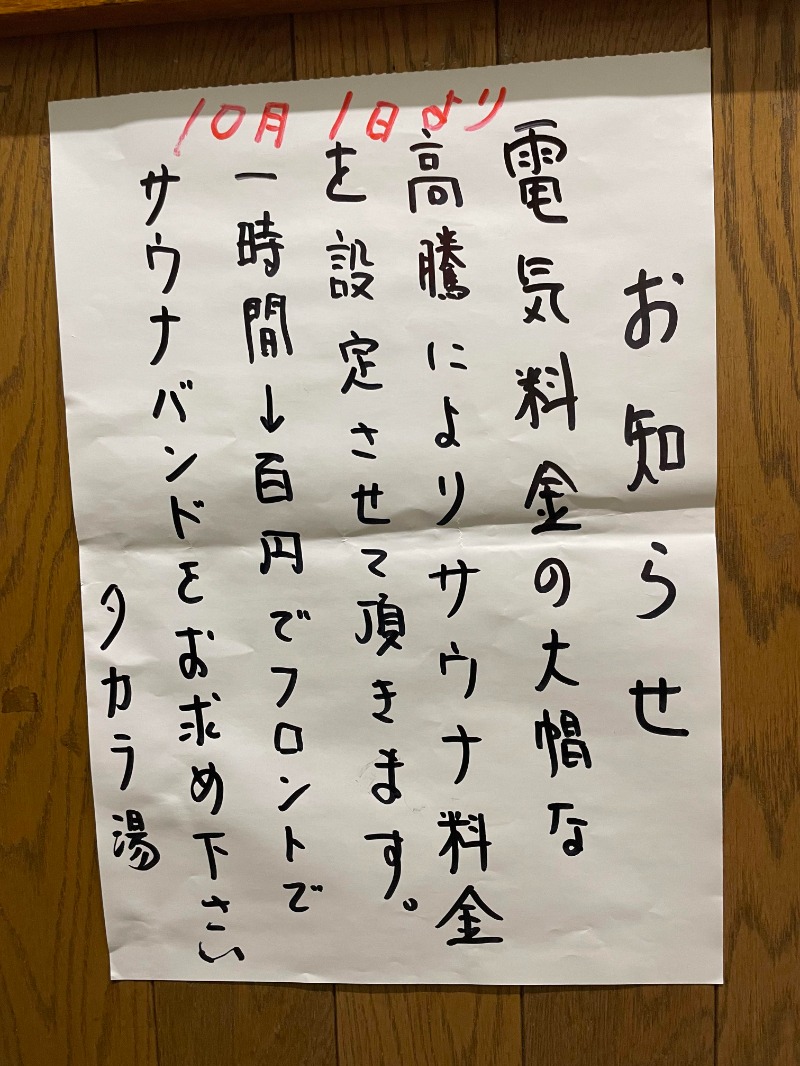 お知らせ
電気料金の大幅な
高騰によりサウナ料金
を設定させて頂きます。
10月1日より
一時間→百円でフロントで
サウナバンドをお求め下さい
タカラ湯